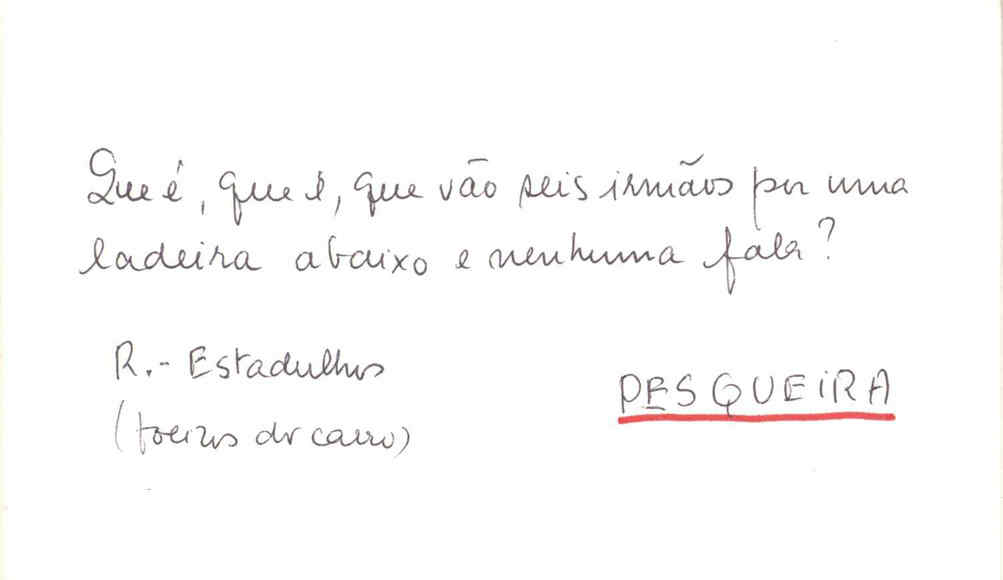 Que é, que é, que vão seis irmãos por uma
ladeira abaixo e nenhuma fala?
R.- Estadulhos
(foeiros do carro)
PESQUEIRA